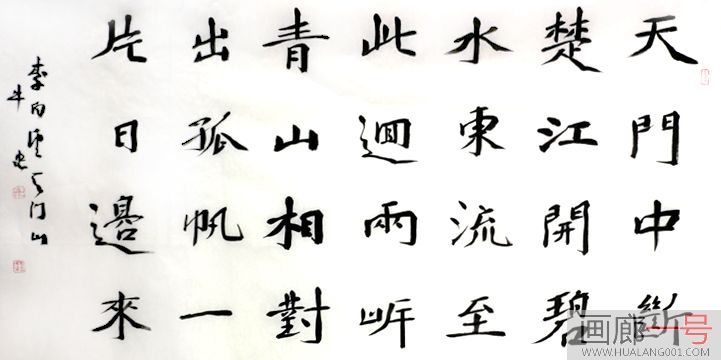 天門中斷
楚江開碧
水東流至
此迴兩岍
青山相對
出孤帆一
片日邊來
李白望天门山
牛
画廊一号
WWW.HUALANG001.COM